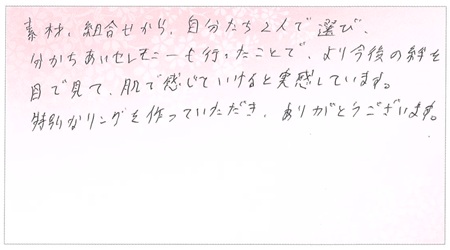 素材、組合せから、自分たち2人で選び、
分かちあいセレモニーも行ったことで、より今後の絆を
目で見て、肌で感じていけると実感しています。
特別なリングを作っていただき、ありがとうございます。